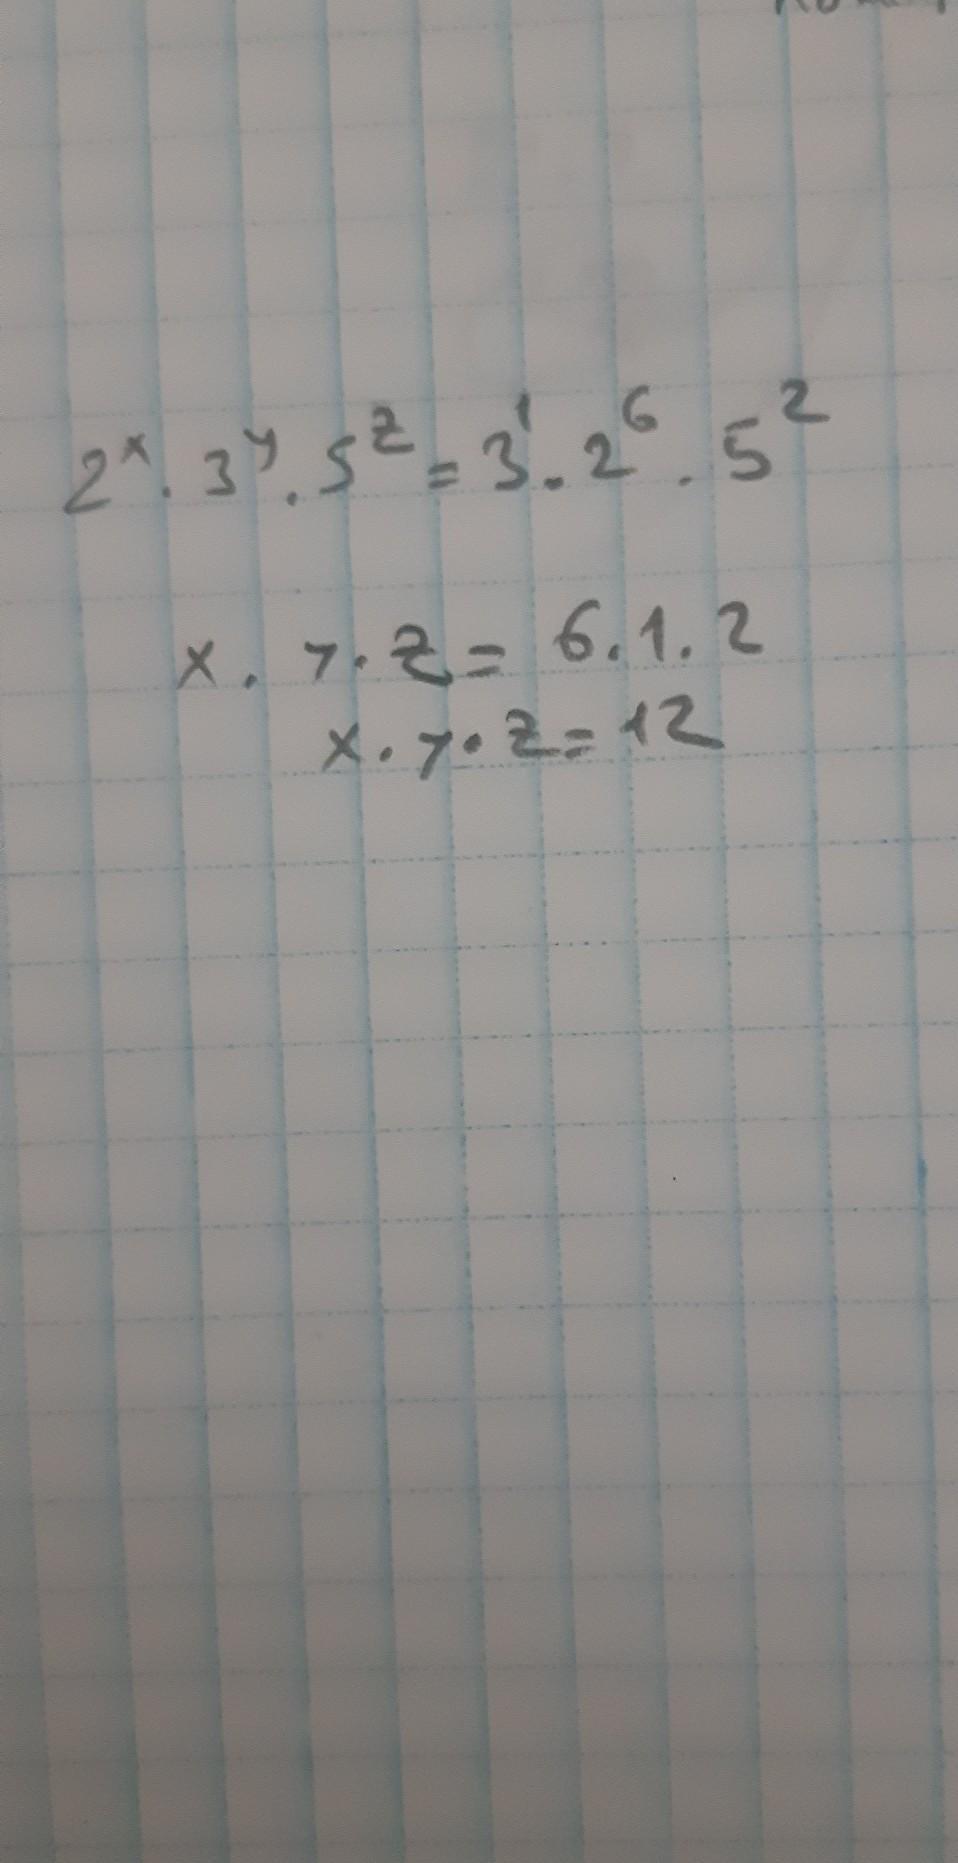 2^x . 3^y . 5^z = 3^1 . 2^6 . 5^2
x . y . z = 6 . 1 . 2
x . y . z = 12